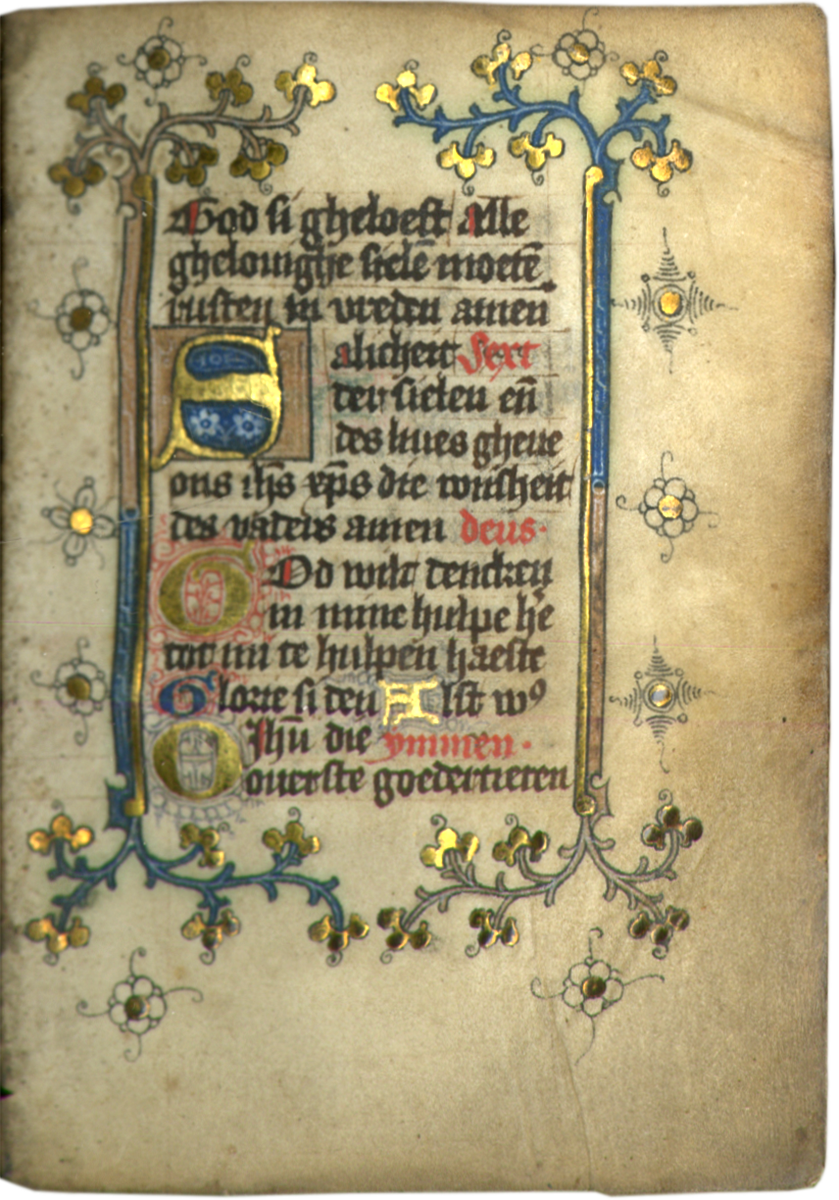 God si gheloeft alle
ghelouighe sielē moetē
rusten in vreden amen
Salicheit Sext
der sielen eñ
des liues gheue
ons ihs xp̄s die wijsheit
des vaders amen deus.
God wilt dencken
in mine hulpe he͛
tot mi te hulpen haeste
Glorie si den Alst wꝰ
O Ihū die ymmen.
ouerste goedertieren